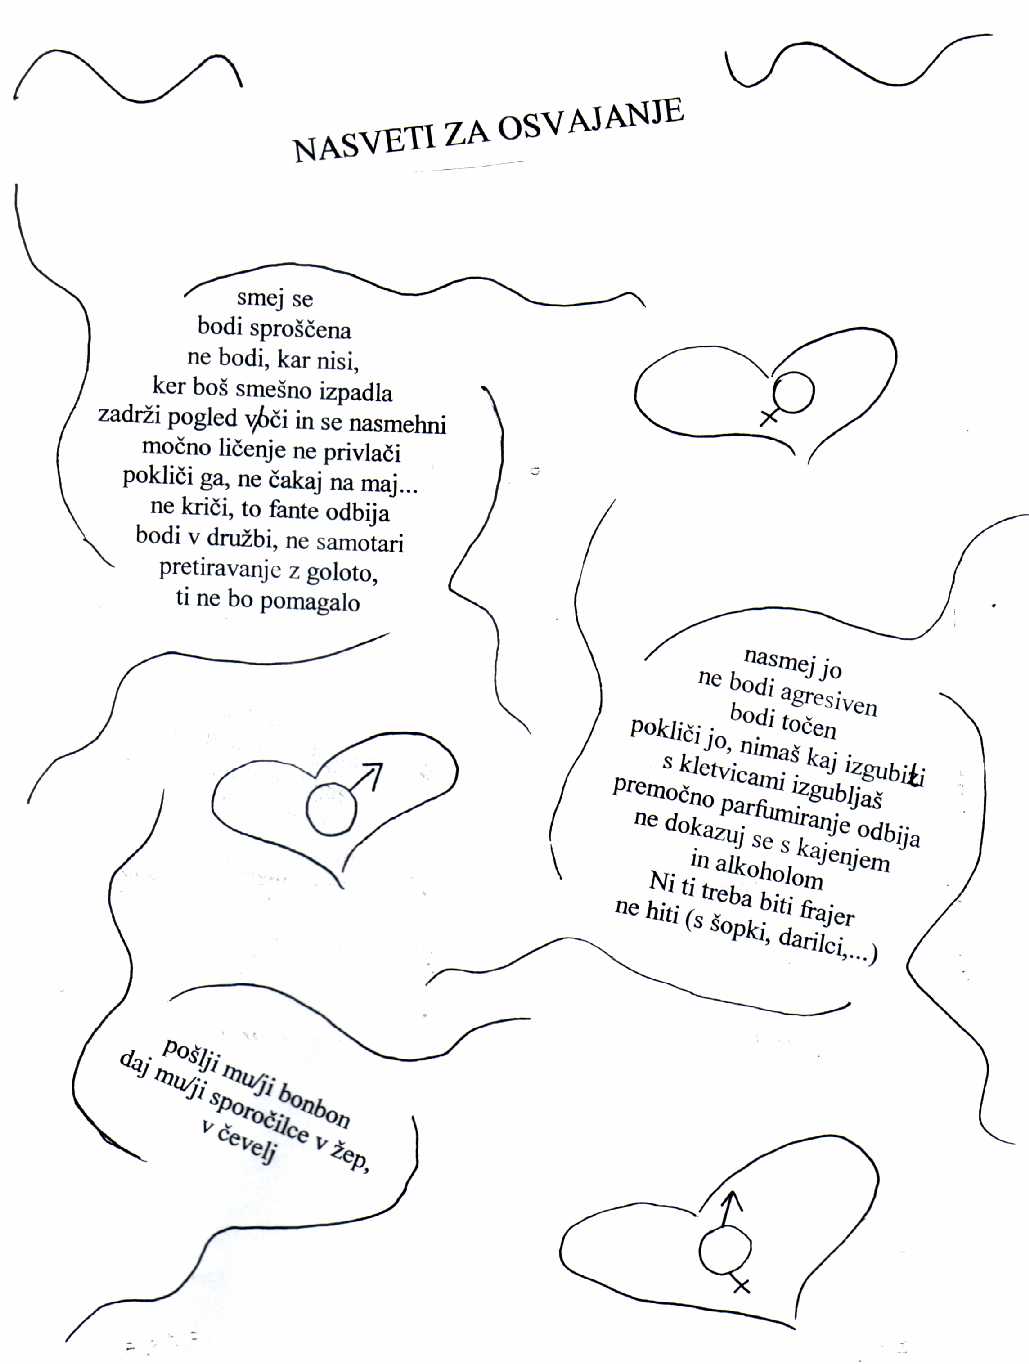 NASVETI ZA OSVAJANJE
smej se
bodi sproščena
ne bodi, kar nisi,
ker boš smešno izpadla
zadrži pogled v oči in se nasmehni
močno ličenje ne privlači
pokliči ga, ne čakaj na maj...
ne kriči, to fante odbija
bodi v družbi, ne samotari
pretiravanje z goloto,
ti ne bo pomagalo
nasmej jo
ne bodi agresiven
bodi točen
pokliči jo, nimaš kaj izgubiti
s kletvicami izgubljaš
premočno parfumiranje odbija
ne dokazuj se s kajenjem
in alkoholom
Ni ti treba biti frajer
ne hiti (s šopki, darilci,...)
pošlji mu/ji bonbon
daj mu/ji sporočilce v žep,
v čevelj